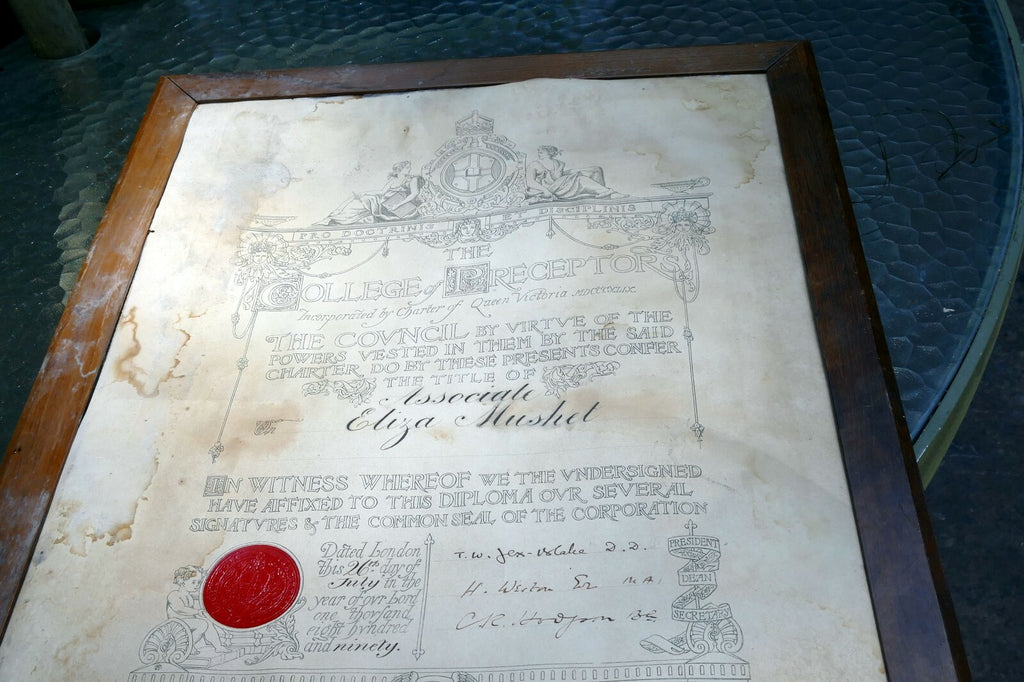 PRO DOCTRINIS ET DISCIPLINIS
THE
COLLEGE of PRECEPTORS
Incorporated by Charter of Queen Victoria MDCCCXLIX
THE COVNCIL BY VIRTVE OF THE
POWERS VESTED IN THEM BY THE SAID
CHARTER DO BY THESE PRESENTS CONFER
THE TITLE OF
Associate
Eliza Mushet
IN WITNESS WHEREOF WE THE VNDERSIGNED
HAVE AFFIXED TO THIS DIPLOMA OVR SEVERAL
SIGNATVRES & THE COMMON SEAL OF THE CORPORATION
Dated London
this 26th day of
July in the
year of ovr Lord
one thovsand
eight hvndred
and ninety.
T. W. D.D.
H. M.A.
C.R. Hodgson
PRESIDENT
DEAN
SECRETARY